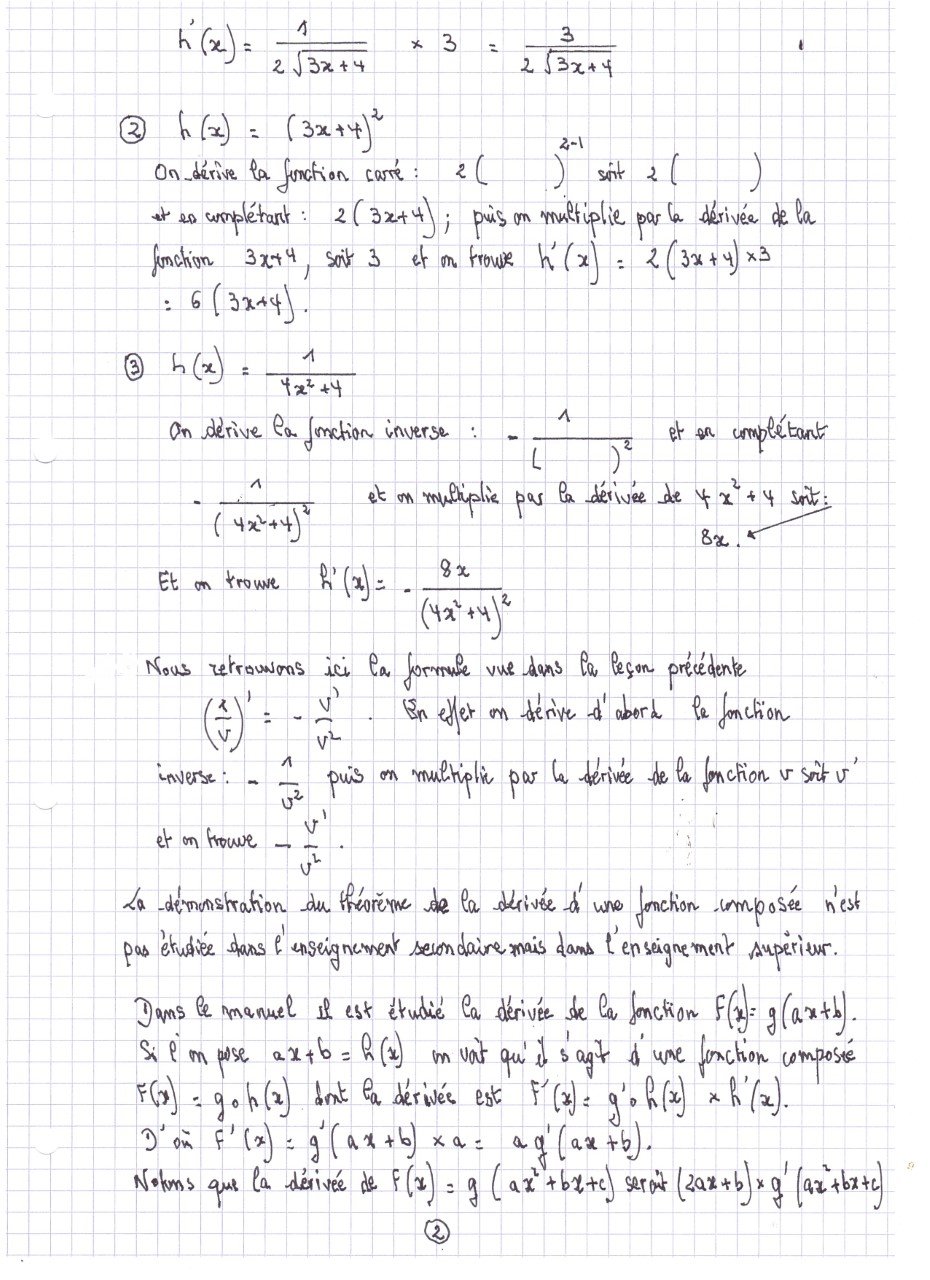 h'(x) = 1 / (2√(3x+4)) × 3 = 3 / (2√(3x+4))
② h(x) = (3x+4)²
On dérive la fonction carré : 2 (      )²⁻¹ soit 2 (      )
et en complétant : 2 (3x+4) ; puis on multiplie par la dérivée de la
fonction 3x+4, soit 3 et on trouve h'(x) = 2(3x+4)×3
= 6 (3x+4).
③ h(x) = 1 / (4x²+4)
On dérive la fonction inverse : - 1 / (      )² et en complétant
- 1 / (4x²+4)² et on multiplie par la dérivée de 4x²+4 soit :
8x.
Et on trouve h'(x) = - 8x / (4x²+4)²
Nous retrouvons ici la formule vue dans la leçon précédente
(1/v)' = - v'/v² . En effet on dérive d'abord la fonction
inverse : - 1/v² puis on multiplie par la dérivée de la fonction v soit v'
et on trouve - v'/v² .
La démonstration du théorème de la dérivée d'une fonction composée n'est
pas étudiée dans l'enseignement secondaire mais dans l'enseignement supérieur.
Dans le manuel il est étudié la dérivée de la fonction F(x) = g(ax+b).
Si l'on pose ax+b = h(x) on voit qu'il s'agit d'une fonction composée
F(x) = g∘h(x) dont la dérivée est F'(x) = g'∘h(x) × h'(x).
D'où F'(x) = g'(ax+b) × a = a g'(ax+b).
Notons que la dérivée de F(x) = g (ax²+bx+c) serait (2ax+b) × g'(ax²+bx+c)
②